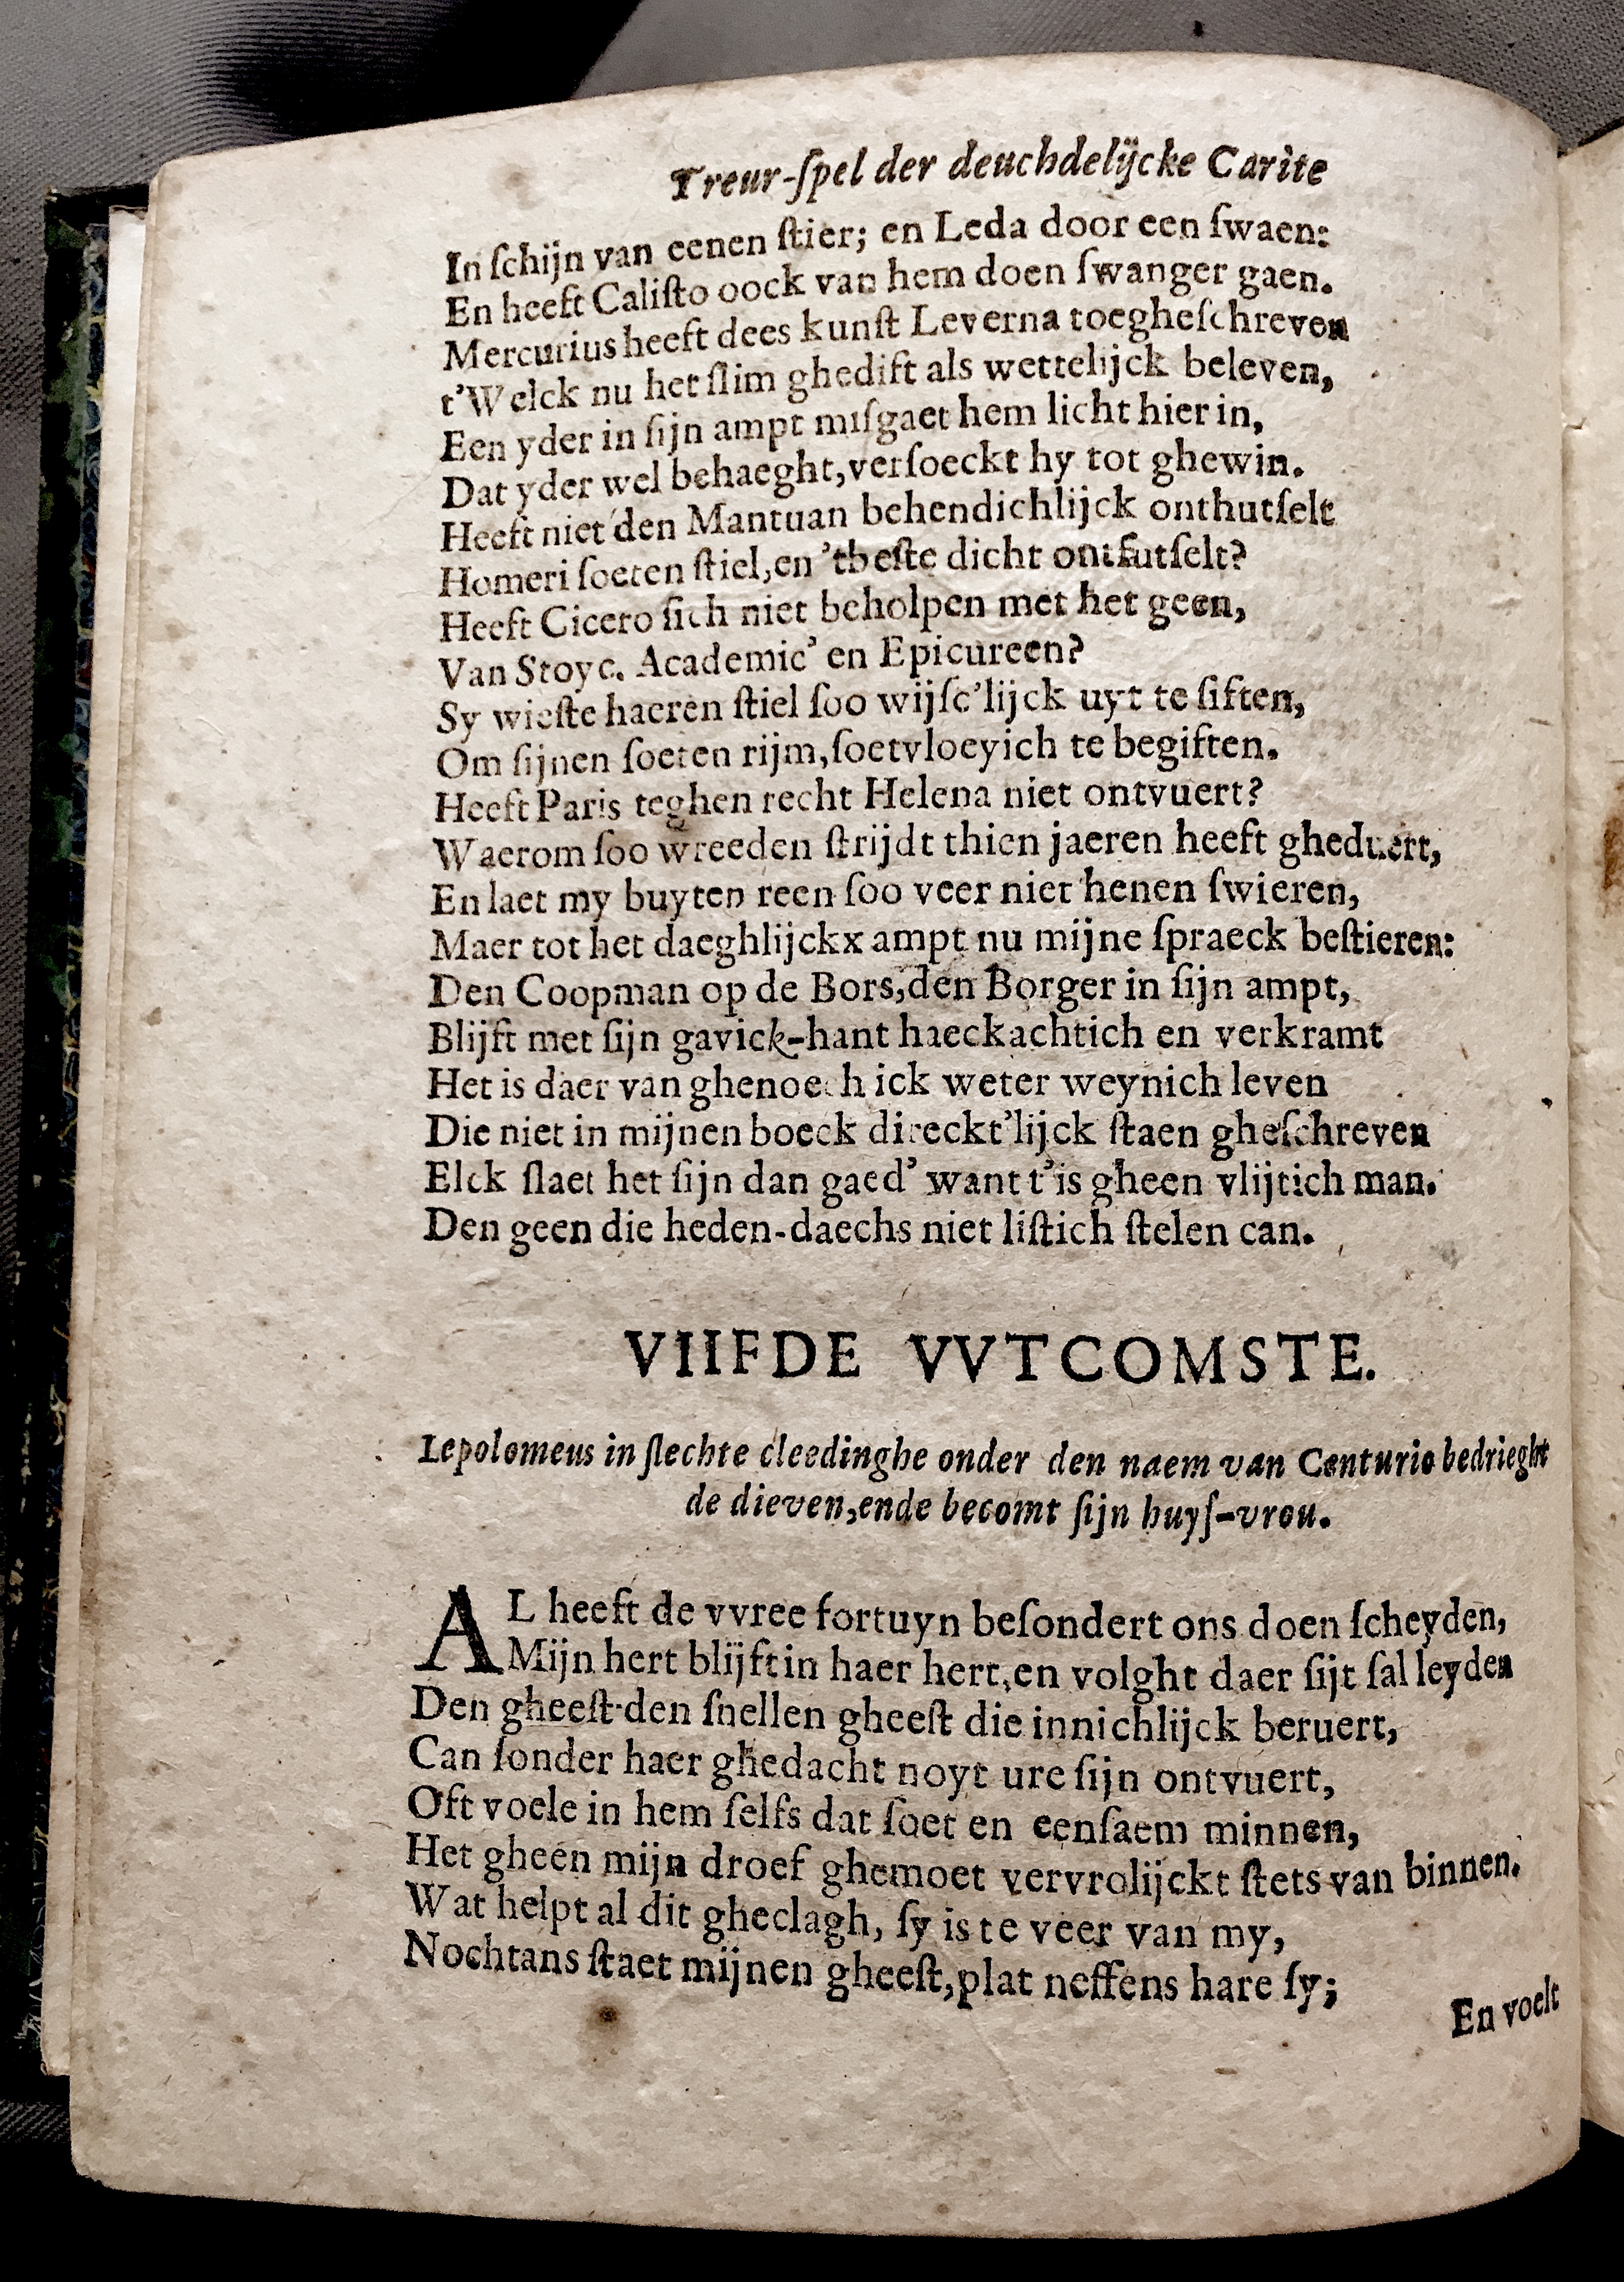 Treur-ſpel der deuchdelijcke Carite
In ſchijn van eenen ſtier; en Leda door een ſwaen:
En heeft Caliſto oock van hem doen ſwanger gaen.
Mercurius heeft dees kunſt Leverna toegheſchreven
t'Welck nu het ſlim ghedift als wettelijck beleven,
Een yder in ſijn ampt miſgaet hem licht hier in,
Dat yder wel behaeght, verſoeckt hy tot ghewin.
Heeft niet den Mantuan behendichlijck onthutſelt
Homeri ſoeten ſtiel, en 'tbeſte dicht ontfutſelt?
Heeft Cicero ſich niet beholpen met het geen,
Van Stoyc. Academic' en Epicureen?
Sy wieſte haeren ſtiel ſoo wijſe'lijck uyt te ſiften,
Om ſijnen ſoeten rijm, ſoetvloeyich te begiften.
Heeft Paris teghen recht Helena niet ontvuert?
Waerom ſoo wreeden ſtrijdt thien jaeren heeft gheduert,
En laet my buyten reen ſoo veer niet henen ſwieren,
Maer tot het daeghlijckx ampt nu mijne ſpraeck beſtieren:
Den Coopman op de Bors, den Borger in ſijn ampt,
Blijft met ſijn gavick-hant haeckachtich en verkramt
Het is daer van ghenoech ick weter weynich leven
Die niet in mijnen boeck direckt'lijck ſtaen gheſchreven
Elck ſlaet het ſijn dan gaed' want t'is gheen vlijtich man.
Den geen die heden-daechs niet liſtich ſtelen can.
VIIFDE VVTCOMSTE.
Lepolomeus in ſlechte cleedinghe onder den naem van Centurio bedrieght
de dieven, ende becomt ſijn huyſ-vrou.
AL heeft de vvree fortuyn beſondert ons doen ſcheyden,
Mijn hert blijft in haer hert, en volght daer ſijt ſal leyden
Den gheeſt den ſnellen gheeſt die innichlijck beruert,
Can ſonder haer ghedacht noyt ure ſijn ontvuert,
Oft voele in hem ſelfs dat ſoet en eenſaem minnen,
Het gheen mijn droef ghemoet vervrolijckt ſtets van binnen.
Wat helpt al dit gheclagh, ſy is te veer van my,
Nochtans ſtaet mijnen gheeſt, plat neffens hare ſy;
En voelt